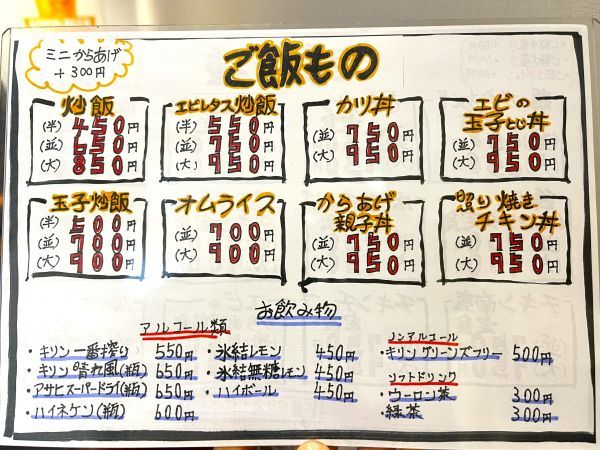 ミニからあげ
+300円
ご飯もの
炒飯
(半) 450円
(並) 650円
(大) 850円
エビレタス炒飯
(半) 550円
(並) 750円
(大) 950円
カツ丼
(並) 750円
(大) 950円
エビの
玉子とじ丼
(並) 750円
(大) 950円
玉子炒飯
(半) 500円
(並) 700円
(大) 900円
オムライス
(並) 700円
(大) 900円
からあげ
親子丼
(並) 750円
(大) 950円
照り焼き
チキン丼
(並) 750円
(大) 950円
お飲み物
アルコール類
・キリン一番搾り 550円
・キリン晴れ風(瓶) 650円
・アサヒスーパードライ(瓶) 650円
・ハイネケン(瓶) 600円
・氷結レモン 450円
・氷結無糖レモン 450円
・ハイボール 450円
ノンアルコール
・キリングリーンズフリー 500円
ソフトドリンク
・ウーロン茶 300円
・緑茶 300円